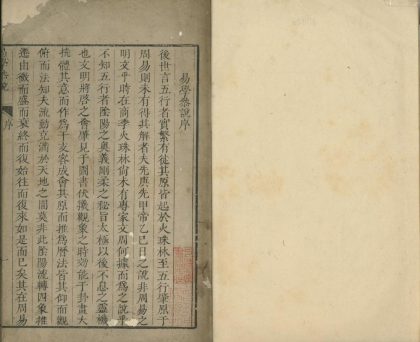 易學參說序
後世言五行者實繁有徒其原皆起於火珠林至五行肇原于
周易則未有得其解者夫先庚先甲帝乙巳日之說非周易之
明文乎時在商季火珠林尚未有專家文周何據而為之說乎
不知五行者陰陽之奧義剛柔之秘旨太極以後不息之靈機
也文明將啓之會肇見于圖書伏羲觀象之時効能于卦畫大
撓體其意而作為干支容成會其原而推為曆法皆其仰而觀
俯而法知夫流動充滿於天地之間莫非此陰陽流轉四象推
遷由微而盛而衰終而復始往而復來如是而已矣其在周易
序